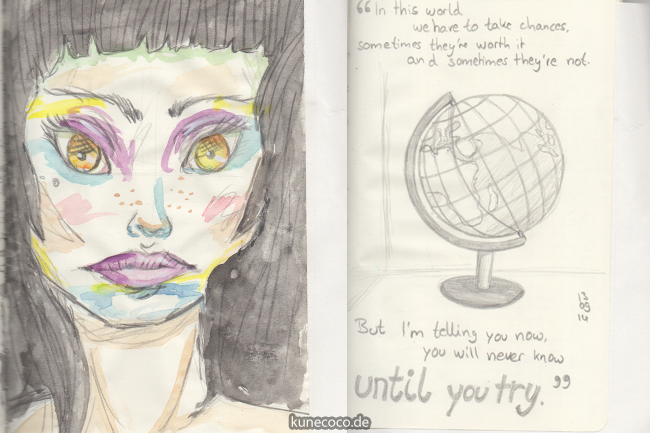 “In this world
we have to take chances,
sometimes they're worth it
and sometimes they're not.
But I'm telling you now,
you will never know
until you try.”
kunecoco.de